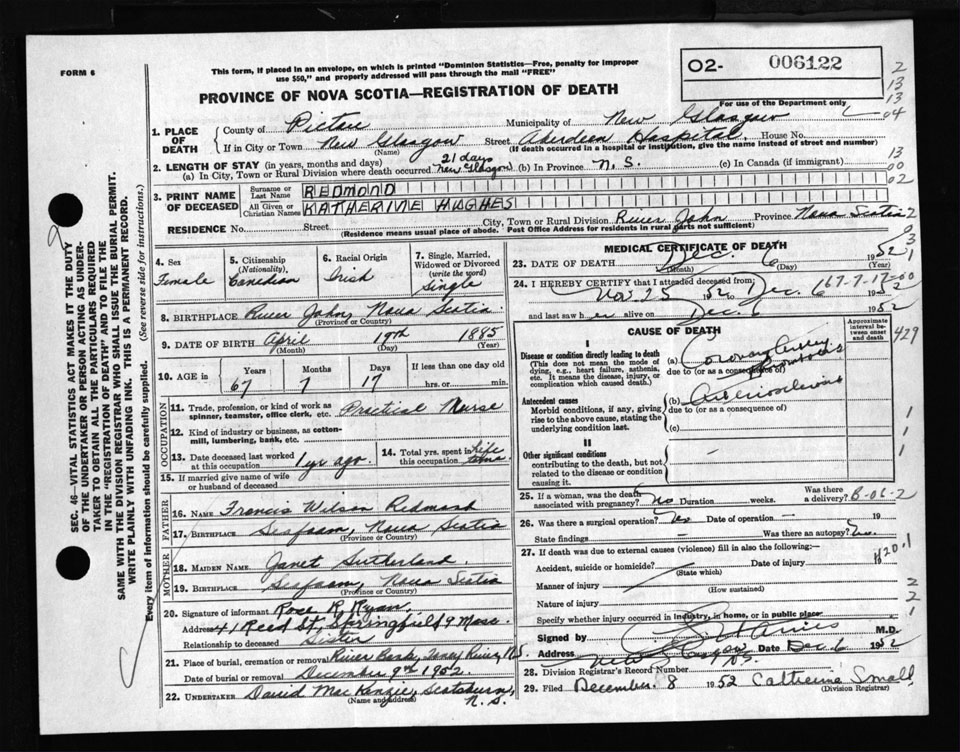 FORM 6
This form, if placed in an envelope, on which is printed "Dominion Statistics—Free, penalty for improper
use $50," and properly addressed will pass through the mail "FREE"
PROVINCE OF NOVA SCOTIA—REGISTRATION OF DEATH
02- 006122
For use of the Department only
2
13
13
04
13
00
02
1. PLACE OF DEATH
County of Pictou Municipality of New Glasgow
If in City or Town New Glasgow Street Aberdeen Hospital, House No.
(Name) (If death occurred in a hospital or institution, give the name instead of street and number)
2. LENGTH OF STAY (in years, months and days)
(a) In City, Town or Rural Division where death occurred 21 days New Glasgow (b) In Province N.S. (c) In Canada (if immigrant)
3. PRINT NAME OF DECEASED
Surname or Last Name REDMOND
All Given or Christian Names KATHERINE HUGHES
RESIDENCE No. Street City, Town or Rural Division River John Province Nova Scotia
(Residence means usual place of abode. Post Office Address for residents in rural parts not sufficient)
4. Sex
Female
5. Citizenship (Nationality)
Canadian
6. Racial Origin
Irish
7. Single, Married, Widowed or Divorced (write the word)
Single
8. BIRTHPLACE River John, Nova Scotia
(Province or Country)
9. DATE OF BIRTH April 19th 1885
(Month) (Day) (Year)
10. AGE in Years Months Days If less than one day old
67 7 17 hrs. or min.
OCCUPATION
11. Trade, profession, or kind of work as spinner, teamster, office clerk, etc. Practical Nurse
12. Kind of industry or business, as cotton-mill, lumbering, bank, etc.
13. Date deceased last worked at this occupation 1 yr ago.
14. Total yrs. spent in this occupation life time
15. If married give name of wife or husband of deceased
FATHER
16. Name Francis Wilson Redmond
17. Birthplace Seafoam, Nova Scotia
(Province or Country)
MOTHER
18. MAIDEN NAME Janet Sutherland
19. Birthplace Seafoam, Nova Scotia
(Province or Country)
20. Signature of informant Rose R. Ryan.
Address 41 Reed St. Springfield 9 Mass.
Relationship to deceased Sister
21. Place of burial, cremation or removal River Bank, Toney River, N.S.
Date of burial or removal December 9th 1952.
22. UNDERTAKER David MacKenzie, Scotsburn, N.S.
(Name and address)
MEDICAL CERTIFICATE OF DEATH
23. DATE OF DEATH Dec. 6 1952
(Month) (Day) (Year)
24. I HEREBY CERTIFY that I attended deceased from
Nov. 25 1952 Dec. 6 1952
67-7-17-00
and last saw her alive on Dec. 6 1952
CAUSE OF DEATH
Approximate interval between onset and death
I
Disease or condition directly leading to death (a) Coronary Artery Thrombosis
(This does not mean the mode of dying, e.g., heart failure, asthenia, etc. It means the disease, injury, or complication which caused death.)
due to (or as a consequence of)
Antecedent causes (b) Arteriosclerosis
Morbid conditions, if any, giving rise to the above cause, stating the underlying condition last.
due to (or as a consequence of)
(c)
II
Other significant conditions
contributing to the death, but not related to the disease or condition causing it.
25. If a woman, was the death associated with pregnancy? No Duration weeks. Was there a delivery?
B-06-2
26. Was there a surgical operation? No Date of operation — 19
State findings — Was there an autopsy? No.
27. If death was due to external causes (violence) fill in also the following:—
Accident, suicide or homicide? Date of injury 19
(State which)
420.1
Manner of injury
(How sustained)
Nature of injury
Specify whether injury occurred in industry, in home, or in public place
Signed by M.D.
Address New Glasgow N.S. Date Dec 6 1952
28. Division Registrar's Record Number
29. Filed December 8 1952 Catherine Small
(Division Registrar)
SEC. 46—VITAL STATISTICS ACT MAKES IT THE DUTY
OF THE UNDERTAKER OR PERSON ACTING AS UNDER-
TAKER TO OBTAIN ALL THE PARTICULARS REQUIRED
IN THE "REGISTRATION OF DEATH" AND TO FILE THE
SAME WITH THE DIVISION REGISTRAR WHO SHALL ISSUE THE BURIAL PERMIT.
WRITE PLAINLY WITH UNFADING INK. THIS IS A PERMANENT RECORD.
Every item of information should be carefully supplied. (See reverse side for instructions.)